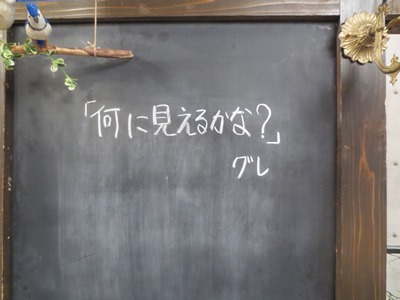 「何に見えるかな?」
グレ